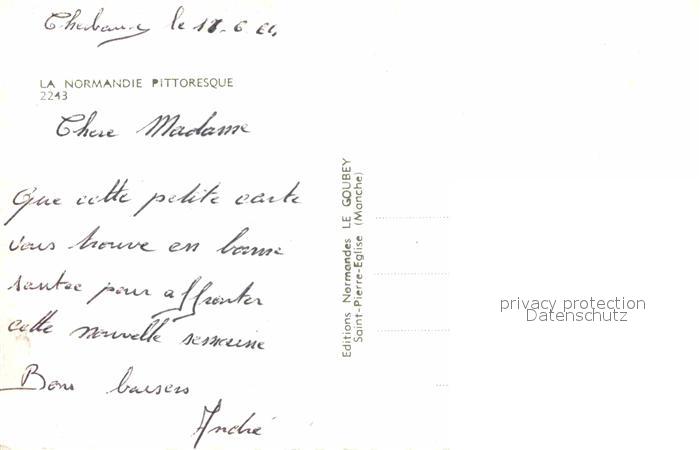 Cherbourg le 18.6.64
LA NORMANDIE PITTORESQUE
2243
Chere Madame
Que cette petite carte
vous trouve en bonne
santee pour affronter
cette nouvelle semaine
Bons baisers
André
Editions Normandes LE GOUBEY
Saint-Pierre-Eglise (Manche)
privacy protection
Datenschutz